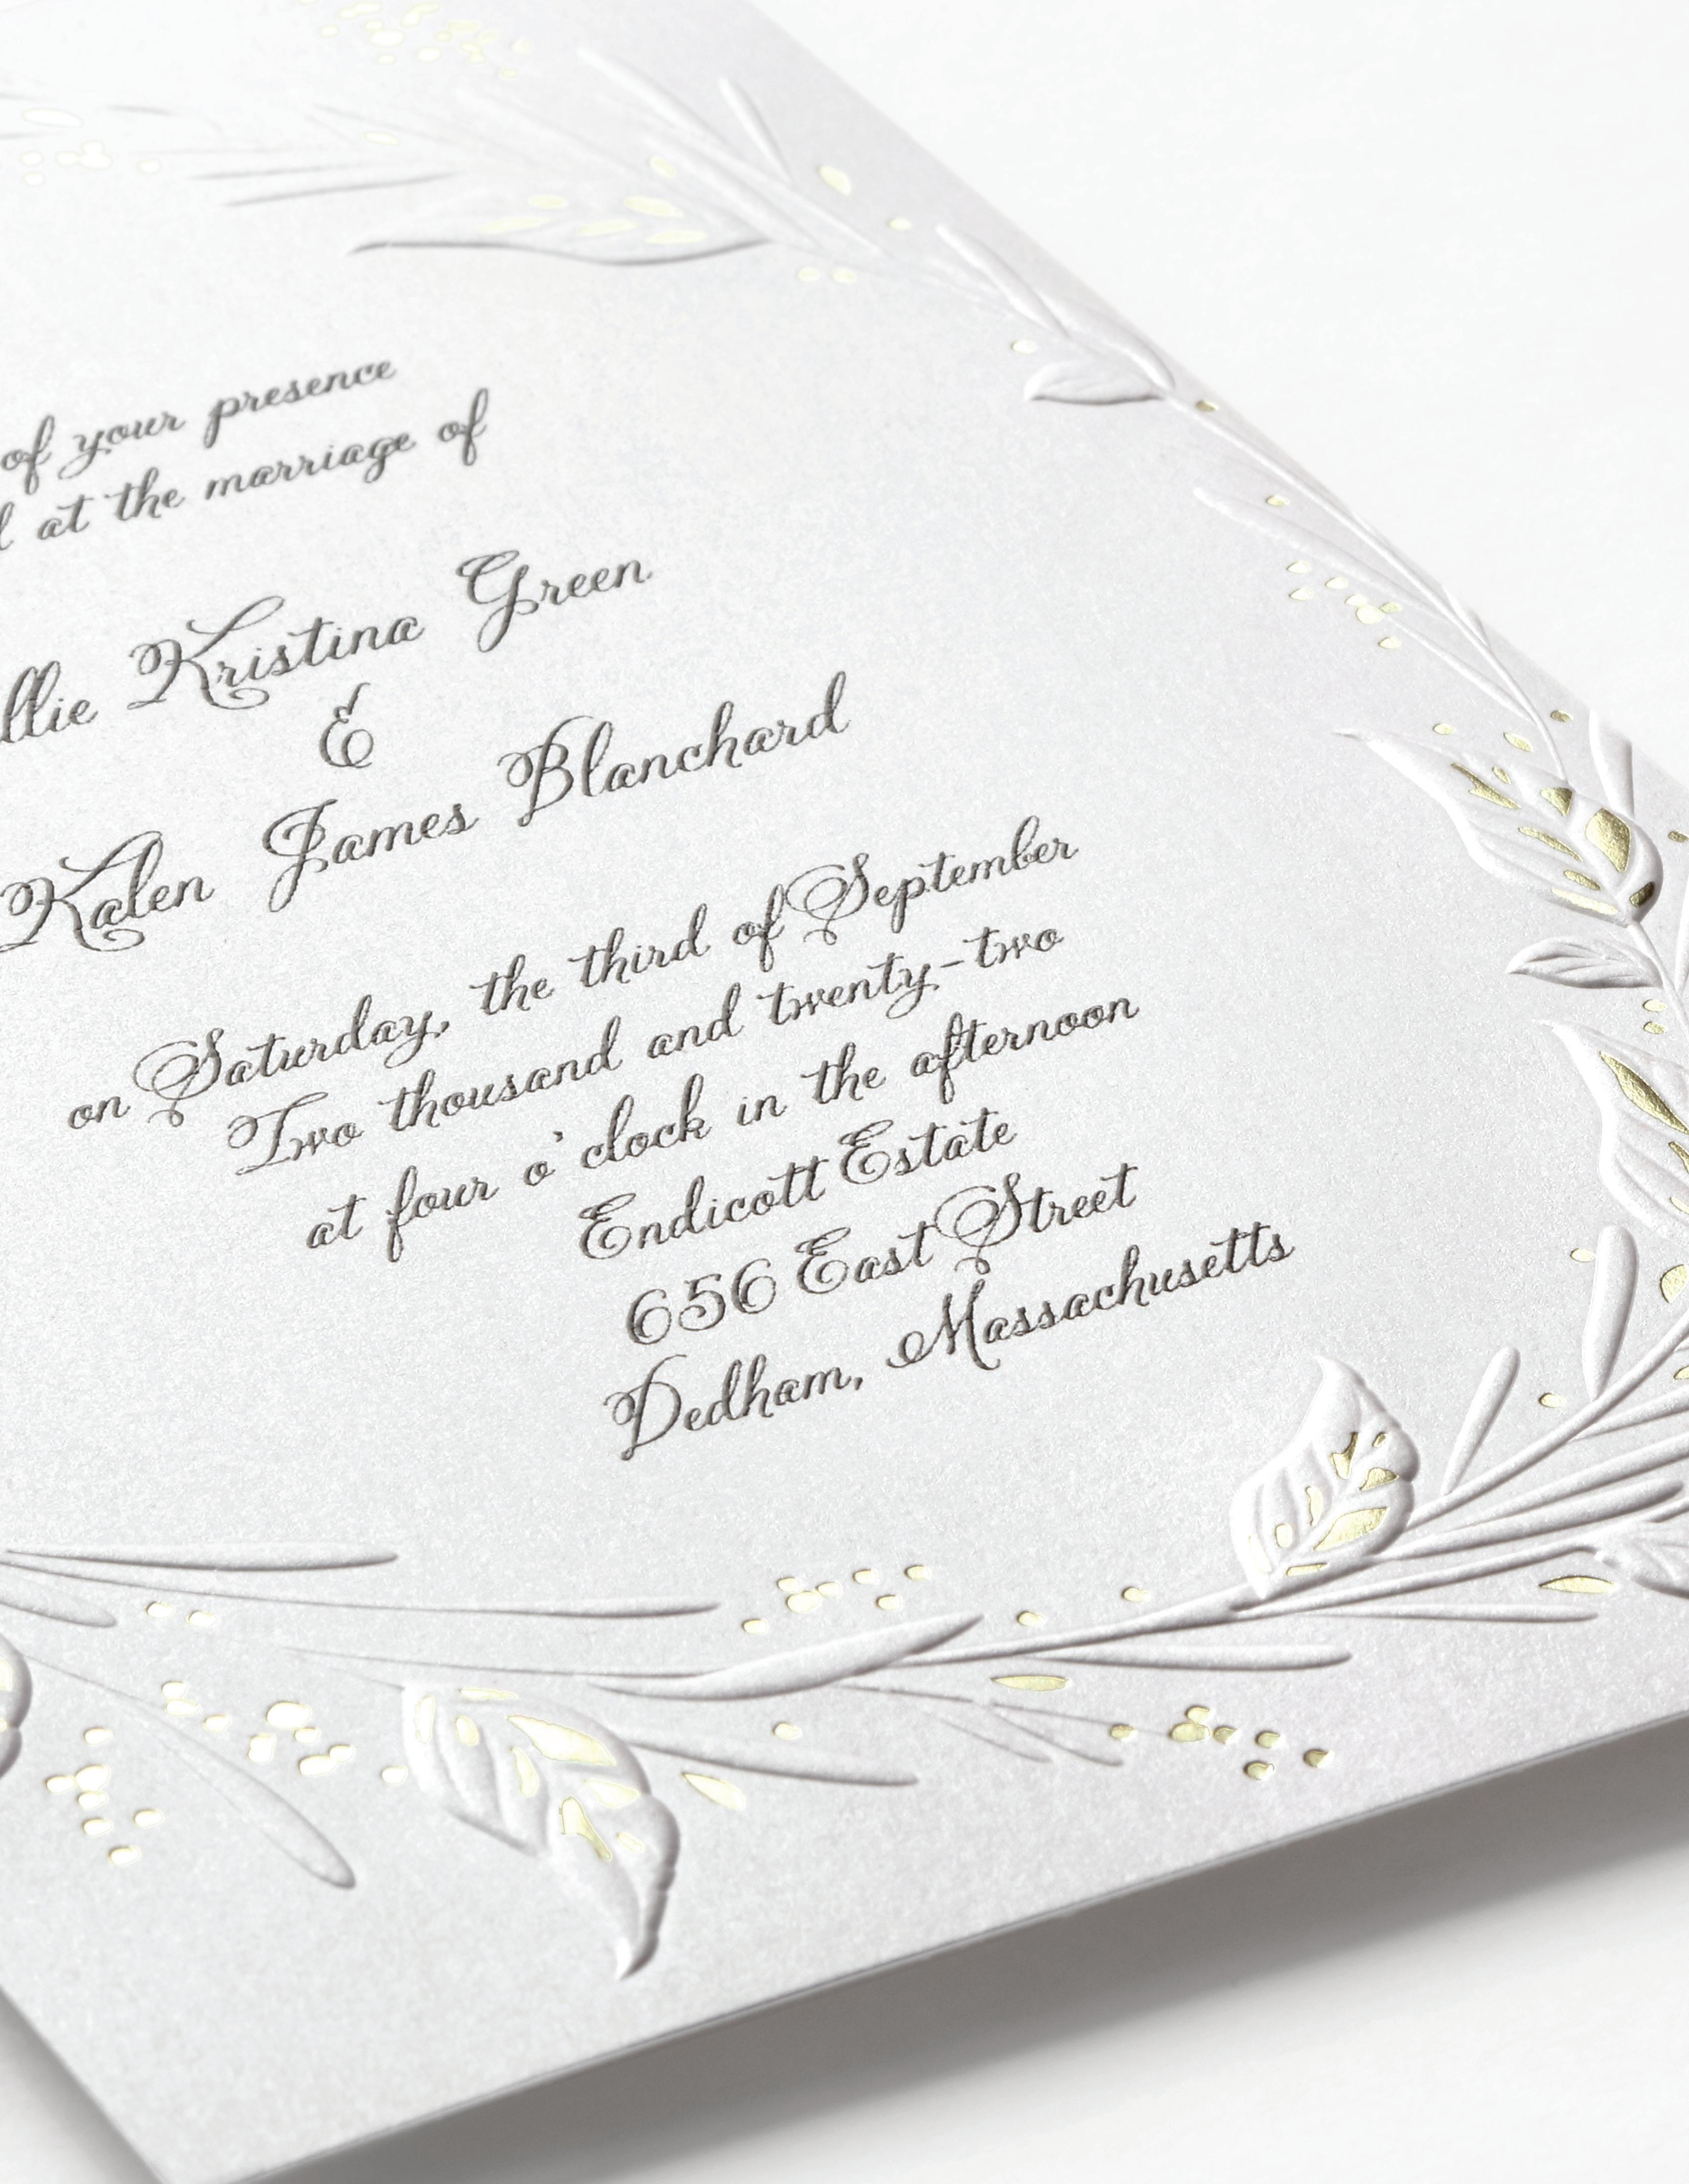 of your presence
at the marriage of
Kristina Green
&
Kalen James Blanchard
on Saturday, the third of September
Two thousand and twenty-two
at four o'clock in the afternoon
Endicott Estate
656 East Street
Dedham, Massachusetts